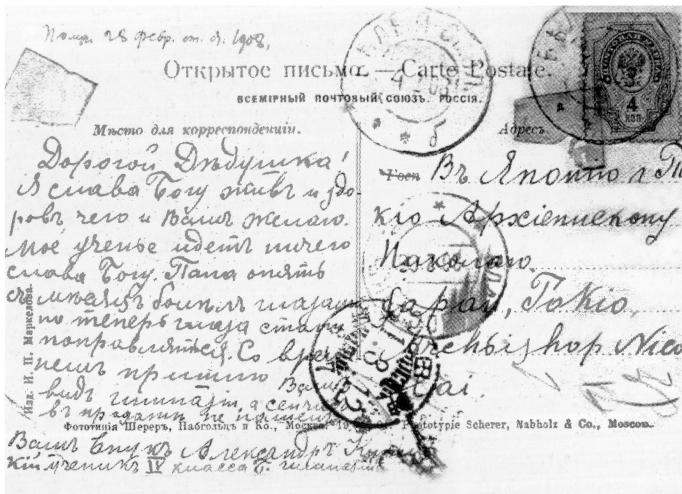 28 февр. 1908,
Открытое письмо. — Carte Postale.
ВСЕМІРНЫЙ ПОЧТОВЫЙ СОЮЗЪ. РОССІЯ.
Мѣсто для корреспонденціи.
Адресъ
4
КОП.
Дорогой Дѣдушка!
Я слава Богу живъ и здо-
ровъ, чего и Вамъ желаю.
Мое ученье идетъ ничего
слава Богу. Папа опять
болѣлъ глазами
но теперь глаза стали
поправляться. Со
пришлю Вамъ
видъ гимназіи, а сейчасъ
въ продажѣ не
Вашъ Внукъ Александръ
ученикъ IV класса Б. гимназіи
Въ Японію г. То
кіо Архіепископу
Николаю
Japan, Tokio,
Archbishop Nico
lai
Изд. И. П. Маркелова.
Фототипія Шереръ, Набгольцъ и Ко., Москва. Phototypie Scherer, Nabholz & Co., Moscou.